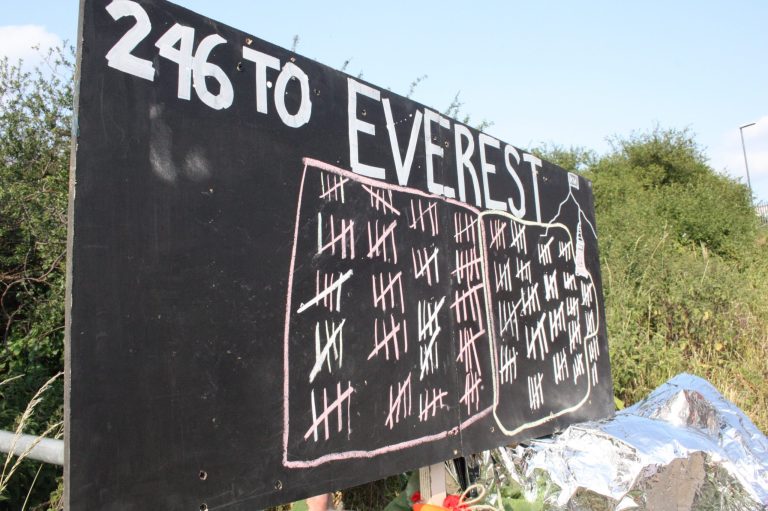 246 TO EVEREST